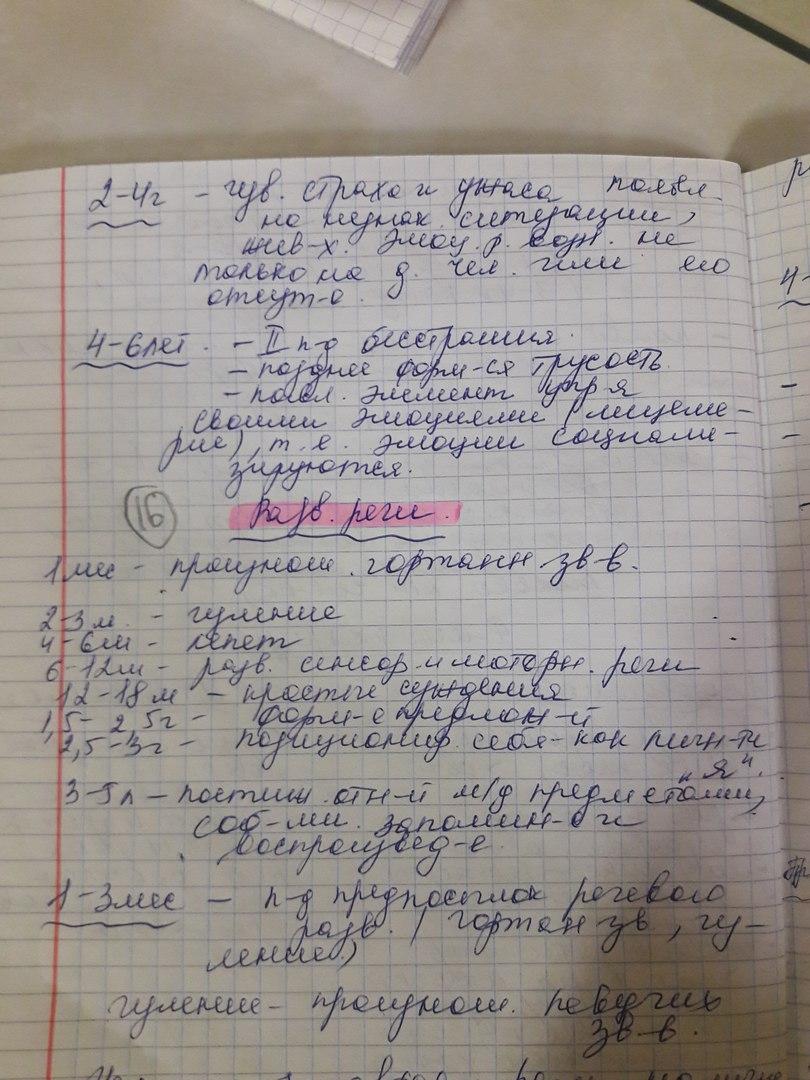 2-4г - чув. страха и ужаса появл.
на незнак. ситуации,
жив-х. эмоц. р. возн. не
только на д. чел. или его
отсут-е.
4-6 лет. - II п-д бесстрашия.
- позднее форм-ся трусость.
- появл. элемент упр-я
своими эмоциями (лицеме-
рие), т.е. эмоции социали-
зируются.
16
Разв. речи.
1 мес - произнош. гортанн зв-в.
2-3 м. - гуление
4-6м - лепет
6-12м - разв. сенсор. и моторн. речи
12-18 м - простые суждения
1,5-2,5г - форм-е предлож-й
2,5-3г - позициониr. себя - как личн-ти
"Я".
3-5л - постиж. отн-й м/д предметами,
соб-ми. запомин-е и
воспроизвед-е.
1-3мес - п-д предпосылок речевого
разв. (гортан зв, гу-
ление)
гуление - произнош. певучих
зв-в.